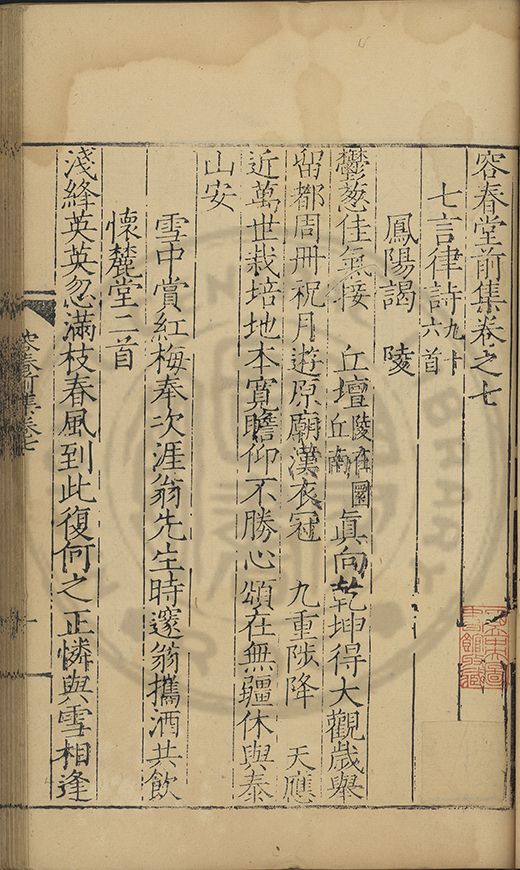 容春堂前集卷之七
七言律詩九十六首
鳳陽謁 陵
鬱葱佳氣接 丘壇陵在圜丘南真向乾坤得大觀歲舉
留都周冊祝月遊原廟漢衣冠 九重陟降 天應
近萬世栽培地本寬瞻仰不勝心頌在無疆休與泰
山安
雪中賞紅梅奉次涯翁先生時邃翁攜酒共飲
懷麓堂二首
淺絳英英忽滿枝春風到此復何之正憐與雪相逢
容春前集卷七